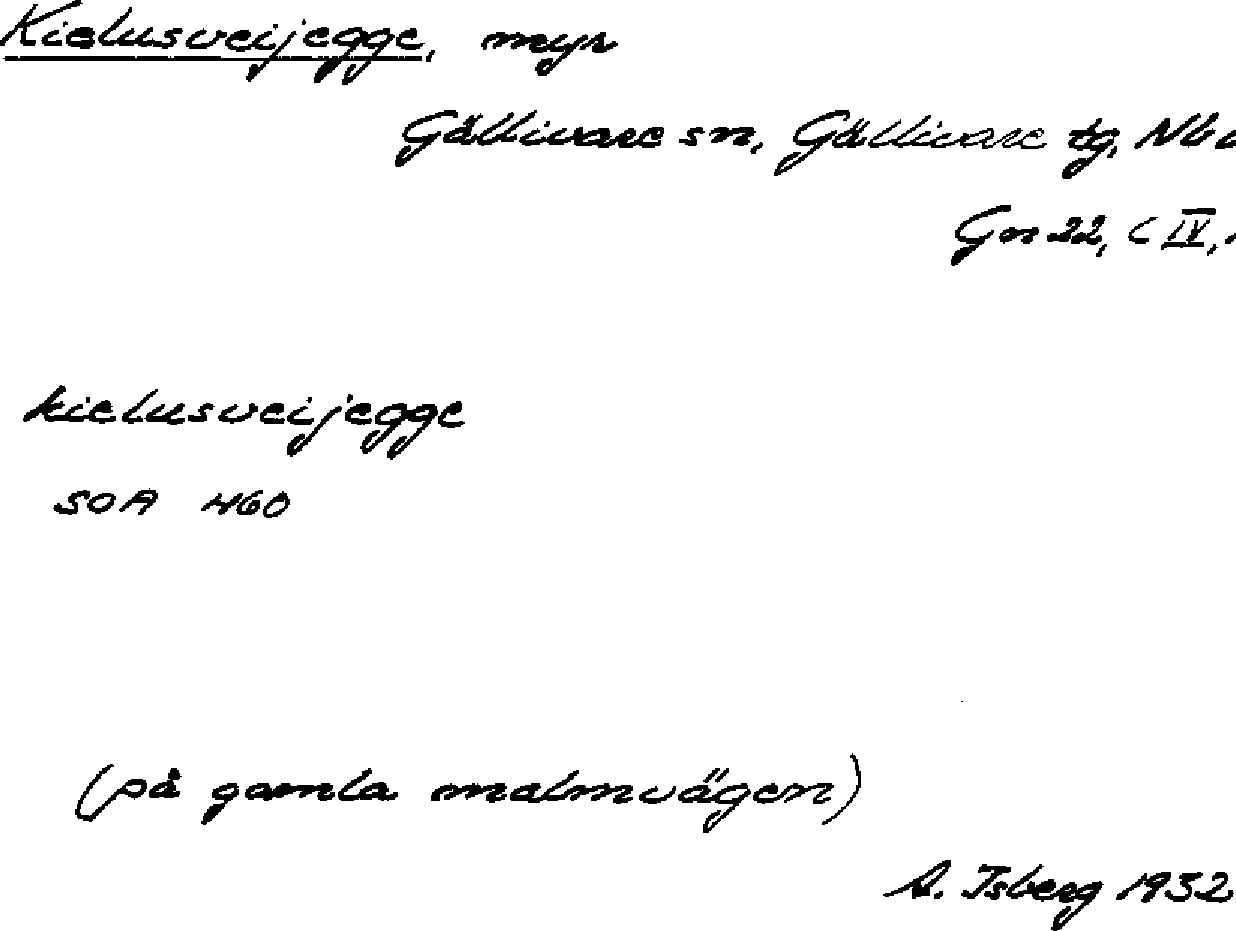 Kielusveijegge, myr
Gällivare sn, Gällivare tg, Nb
Gn 22, C IV,
kielusveijegge
SOA 460
(på gamla malmvägen)
A. Isberg 1932